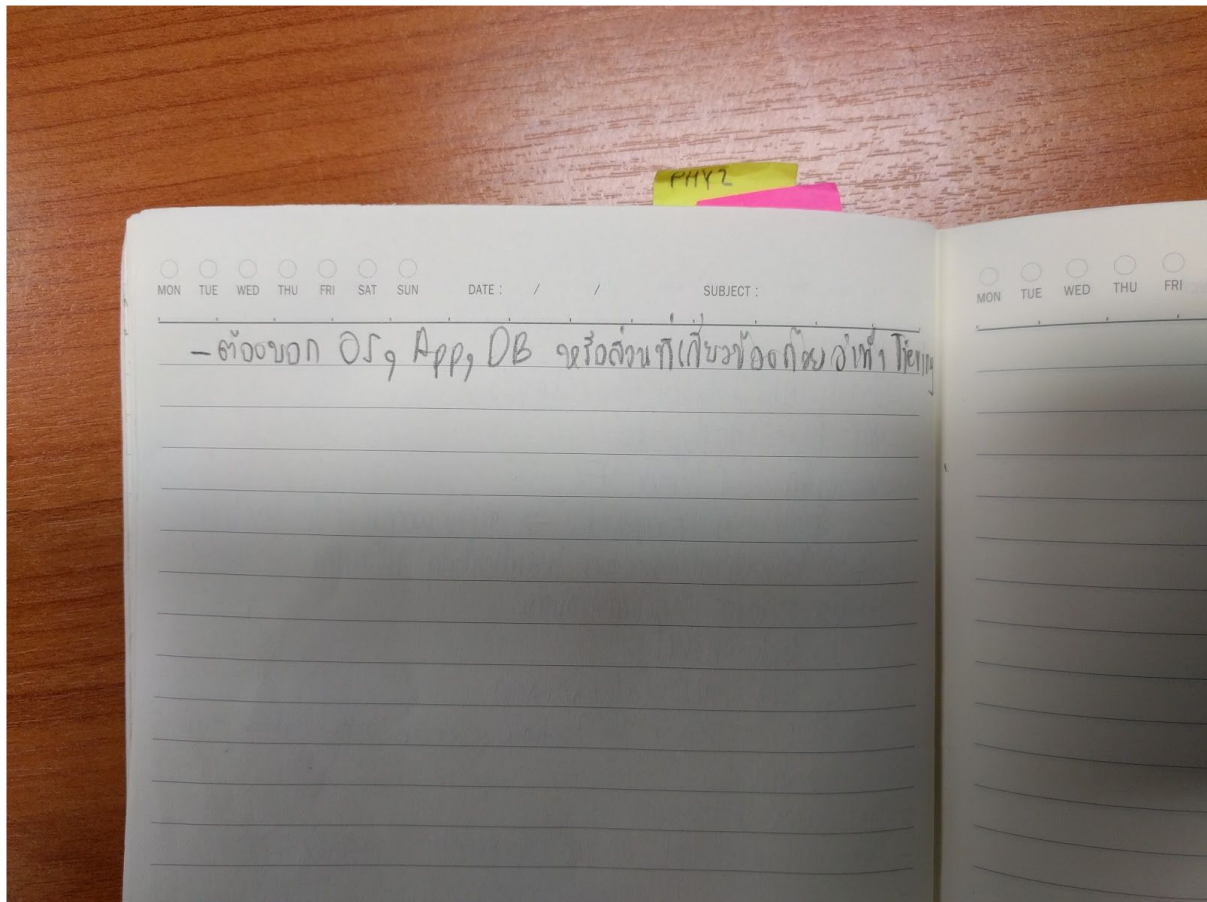 PHY2
MON TUE WED THU FRI SAT SUN DATE : / / SUBJECT :
- ต้องบอก OS, App, DB หรือส่วนที่เกี่ยวข้องด้วย ว่าทำ Tiering
MON TUE WED THU FRI